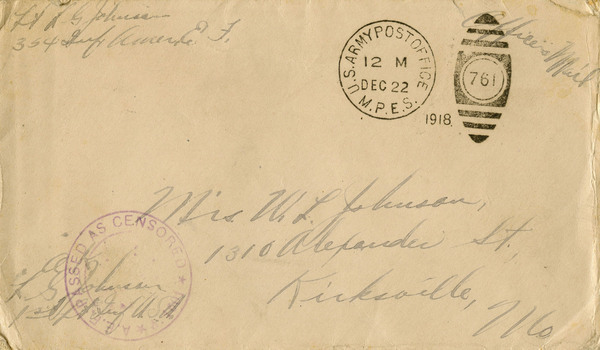 Lt L G Johnson
354 Inf Amer. E F
Officer's Mail
U.S. ARMY POST OFFICE
12 M
DEC 22
M.P.E.S.
1918
761
Mrs W. L. Johnson,
1310 Alexander St.,
Kirksville,
Mo
PASSED AS CENSORED
A.E.F.
L G Johnson
1st Lt Inf USA